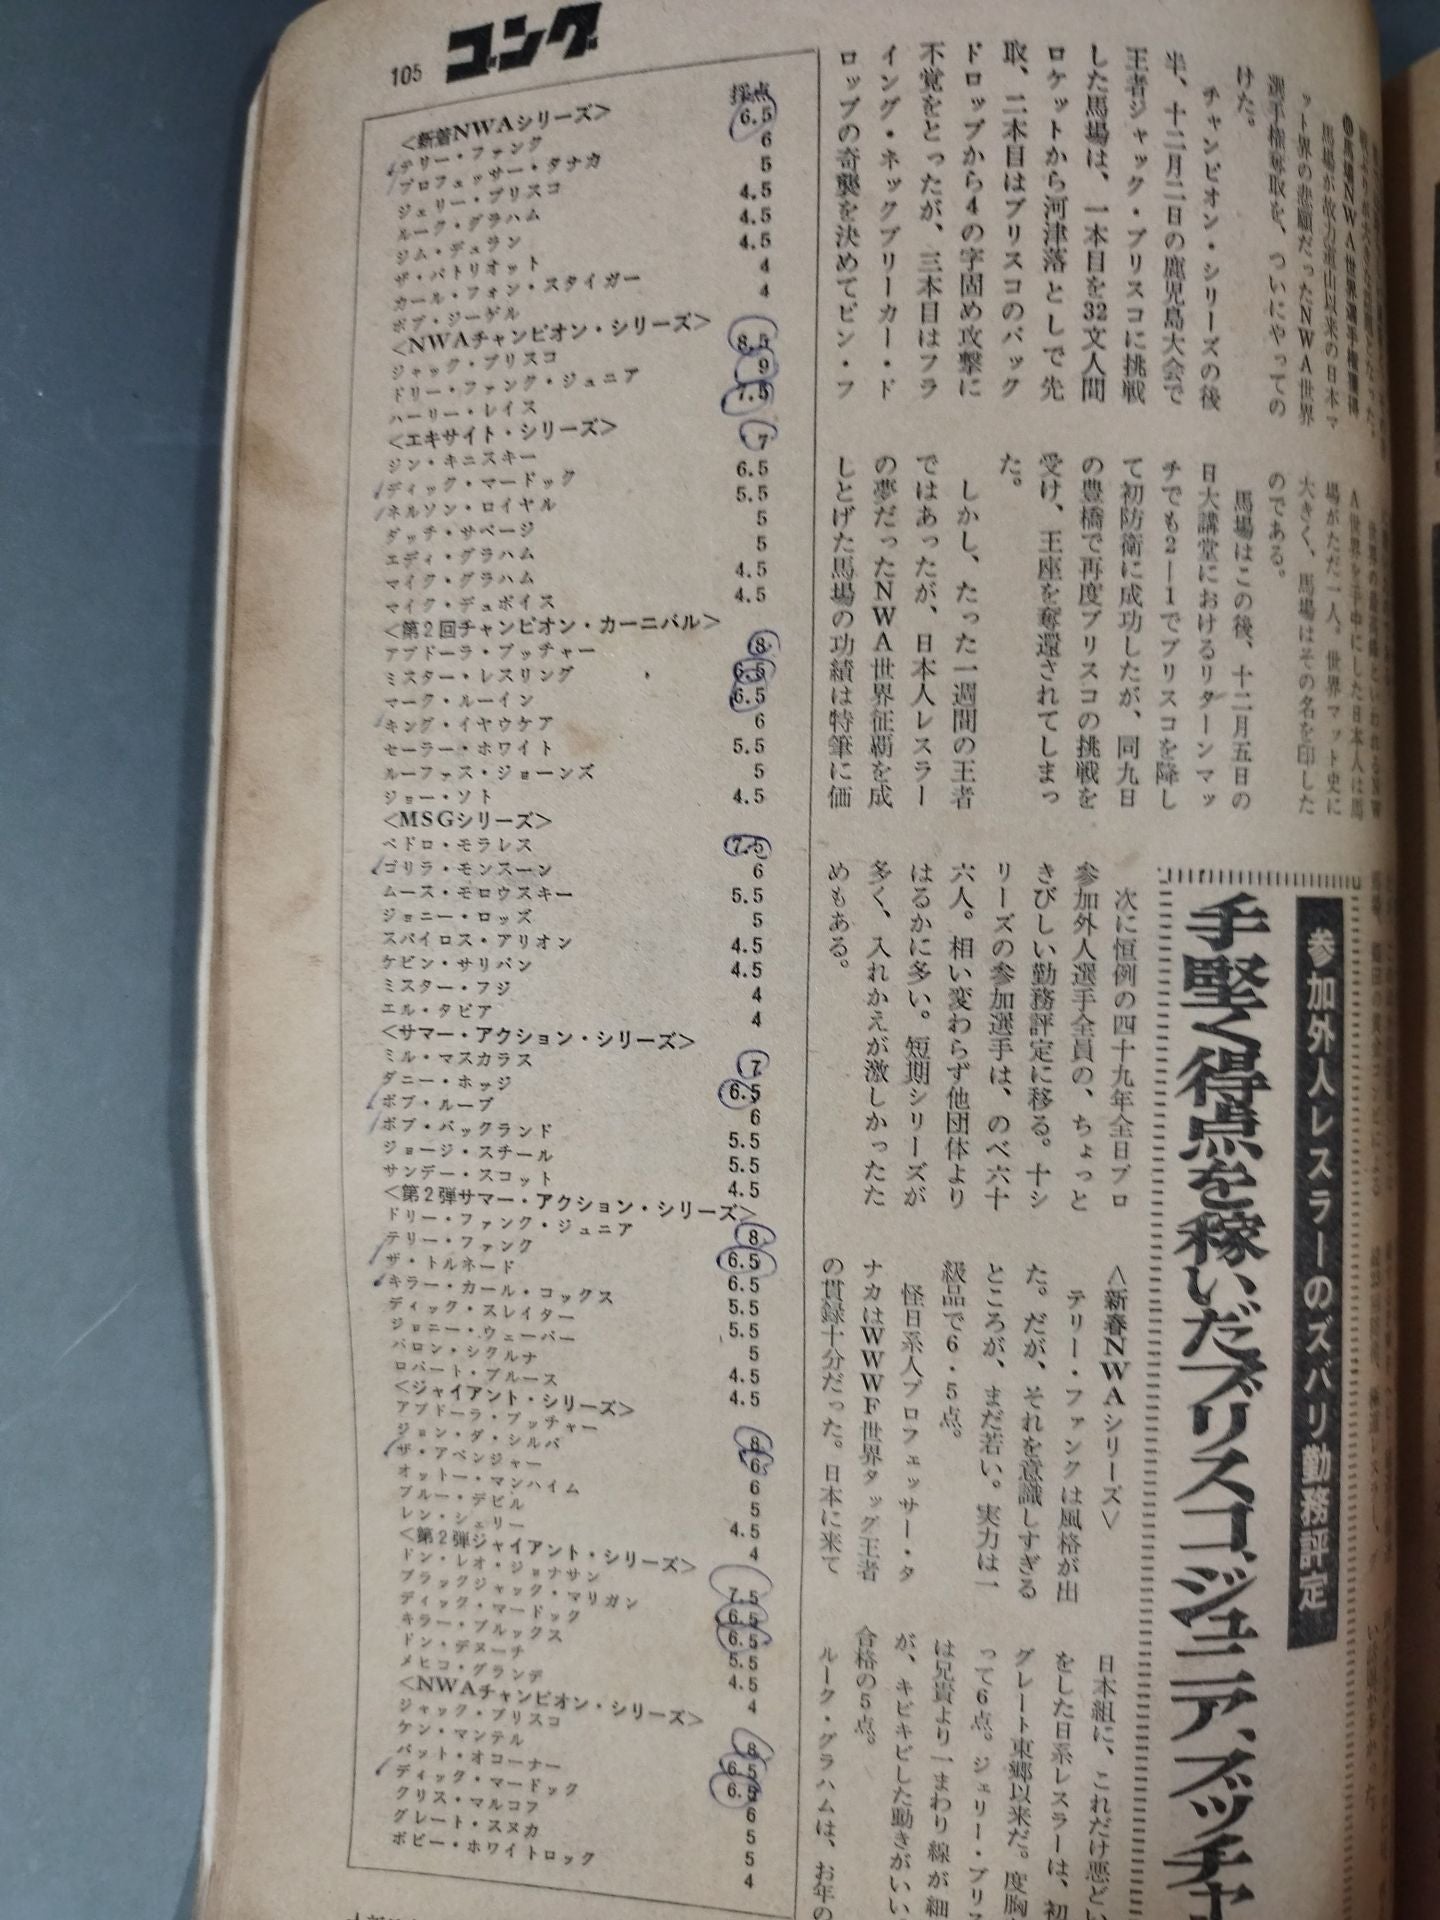 105 ゴング
採点
<新春NWAシリーズ>
テリー・ファンク 6.5
プロフェッサー・タナカ 6
ジェリー・ブリスコ 5
ルーク・グラハム 4.5
ジム・デュラン 4.5
ザ・パトリオット 4.5
カール・フォン・スタイガー 4
ボブ・ジーゲル 4
<NWAチャンピオン・シリーズ>
ジャック・ブリスコ 8.5
ドリー・ファンク・ジュニア 9
ハーリー・レイス 7.5
<エキサイト・シリーズ>
ジン・キニスキー 7
ディック・マードック 6.5
ネルソン・ロイヤル 5.5
ダッチ・サベージ 5
エディ・グラハム 5
マイク・グラハム 4.5
マイク・デュボイス 4.5
<第2回チャンピオン・カーニバル>
アブドーラ・ブッチャー 8
ミスター・レスリング 6.5
マーク・ルーイン 6.5
キング・イヤウケア 6
セーラー・ホワイト 5.5
ルーファス・ジョーンズ 5
ジョー・ソト 4.5
<MSGシリーズ>
ペドロ・モラレス 7.5
ゴリラ・モンスーン 6
ムース・モロウスキー 5.5
ジョニー・ロッズ 5
スパイロス・アリオン 4.5
ケビン・サリバン 4.5
ミスター・フジ 4
エル・タピア 4
<サマー・アクション・シリーズ>
ミル・マスカラス 7
ダニー・ホッジ 6.5
ボブ・ループ 6
ボブ・バックランド 5.5
ジョージ・スチール 5.5
サンデー・スコット 4.5
<第2弾サマー・アクション・シリーズ>
ドリー・ファンク・ジュニア 8
テリー・ファンク 6.5
ザ・トルネード 6.5
キラー・カール・コックス 5.5
ディック・スレイター 5.5
ジョニー・ウェーバー 5
バロン・シクルナ 4.5
ロバート・ブルース 4.5
<ジャイアント・シリーズ>
アブドーラ・ブッチャー 8
ジョン・ダ・シルバ 6
ザ・アベンジャー 6
オットー・マンハイム 5
ブルー・デビル 4.5
レン・シェリー 4
<第2弾ジャイアント・シリーズ>
ドン・レオ・ジョナサン 7.5
ブラックジャック・マリガン 6.5
ディック・マードック 6.5
キラー・ブルックス 5.5
ドン・デヌーチ 4.5
メヒコ・グランデ 4
<NWAチャンピオン・シリーズ>
ジャック・ブリスコ 8
ケン・マンテル 6.5
パット・オコーナー 6.5
ディック・マードック 6
クリス・マルコフ 5
グレート・スヌカ 5
ボビー・ホワイトロック 4
馬場NWA世界選手権獲得
馬場が故力道山以来の日本マ
ット界の悲願だったNWA世界
選手権奪取を、ついにやっての
けた。
チャンピオン・シリーズの後
半、十二月二日の鹿児島大会で
王者ジャック・ブリスコに挑戦
した馬場は、一本目を32文人間
ロケットから河津落としで先
取、二本目はブリスコのバック
ドロップから4の字固め攻撃に
不覚をとったが、三本目はフラ
イング・ネックブリーカー・ド
ロップの奇襲を決めてピン・フ
A世界を手中にした日本人は馬
場がただ一人。世界マット史に
大きく、馬場はその名を印した
のである。
馬場はこの後、十二月五日の
日大講堂におけるリターンマッ
チでも2ー1でブリスコを降し
て初防衛に成功したが、同九日
の豊橋で再度ブリスコの挑戦を
受け、王座を奪還されてしまっ
た。
しかし、たった一週間の王者
ではあったが、日本人レスラー
の夢だったNWA世界征覇を成
しとげた馬場の功績は特筆に価
参加外人レスラーのズバリ勤務評定
手堅く得点を稼いだブリスコ、ジュニア、ブッチャ
次に恒例の四十九年全日プロ
参加外人選手全員の、ちょっと
きびしい勤務評定に移る。十シ
リーズの参加選手は、のべ六十
六人。相い変わらず他団体より
はるかに多い。短期シリーズが
多く、入れかえが激しかったた
めもある。
<新春NWAシリーズ>
テリー・ファンクは風格が出
た。だが、それを意識しすぎる
ところが、まだ若い。実力は一
級品で6・5点。
怪日系人プロフェッサー・タ
ナカはWWWF世界タッグ王者
の貫録十分だった。日本に来て
日本組に、これだけ悪どい
をした日系レスラーは、初
グレート東郷以来だ。度胸
って6点。ジェリー・ブリス
は兄貴より一まわり線が細
が、キビキビした動きがいい
合格の5点。
ルーク・グラハムは、お年の